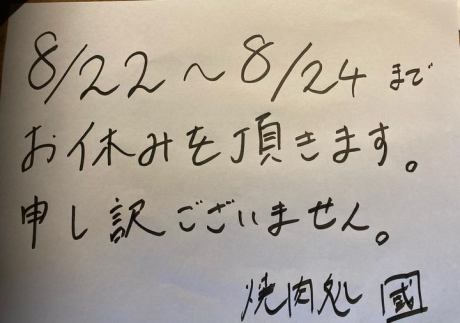 8/22〜8/24まで
お休みを頂きます。
申し訳ございません。
焼肉処 國